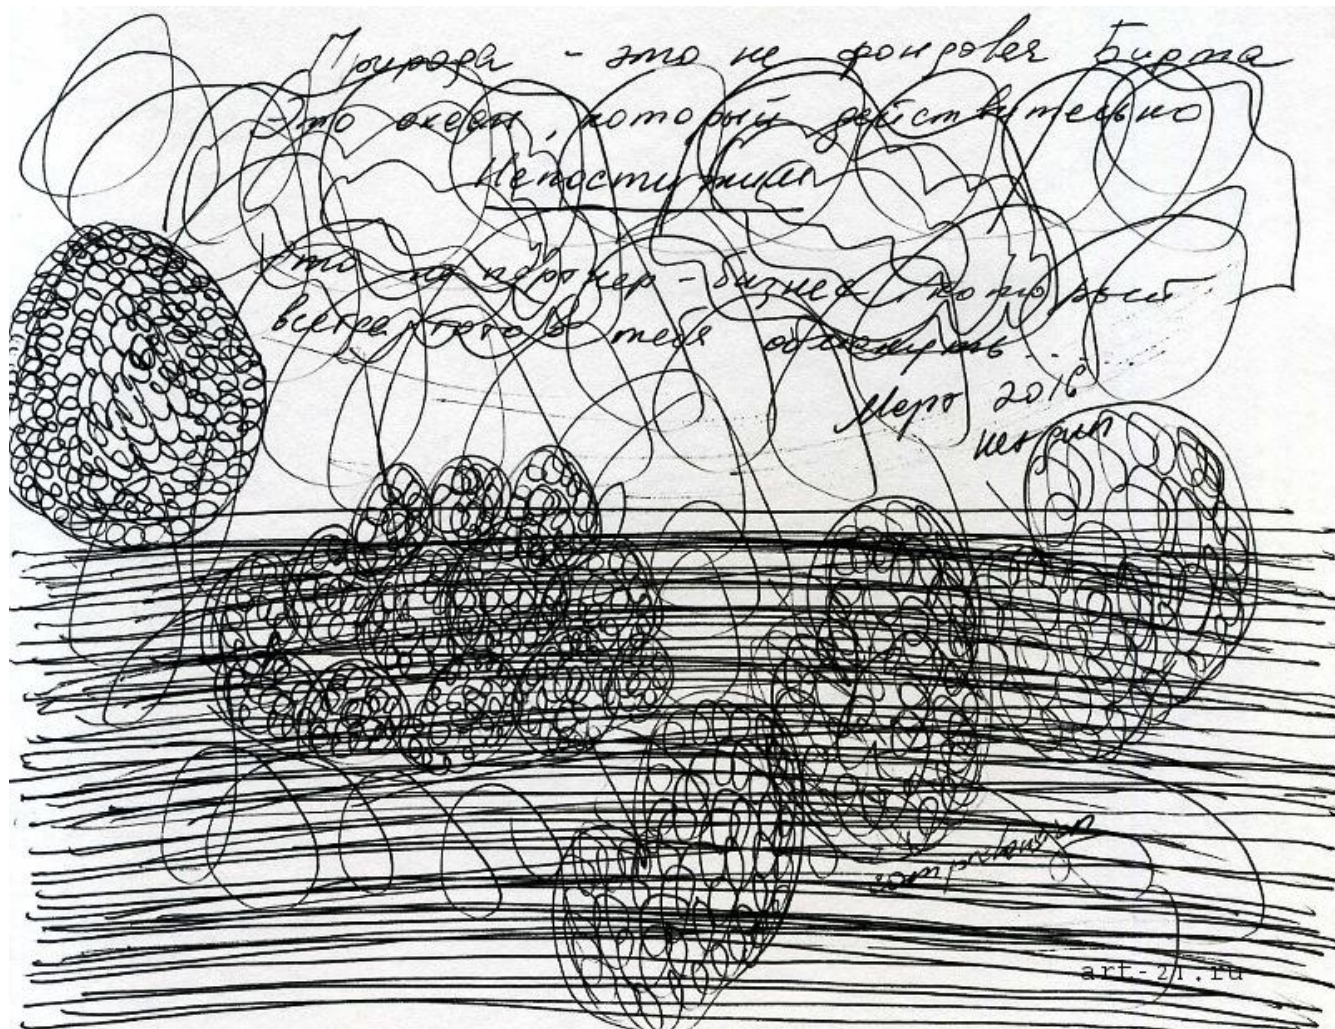 Природа - это не фондовая Биржа
Это океан, который действительно
Непостижим
Это не партнер - бизнес, который
всегда готов тебя обмануть...
Март 2016
comprehension
art-21.ru